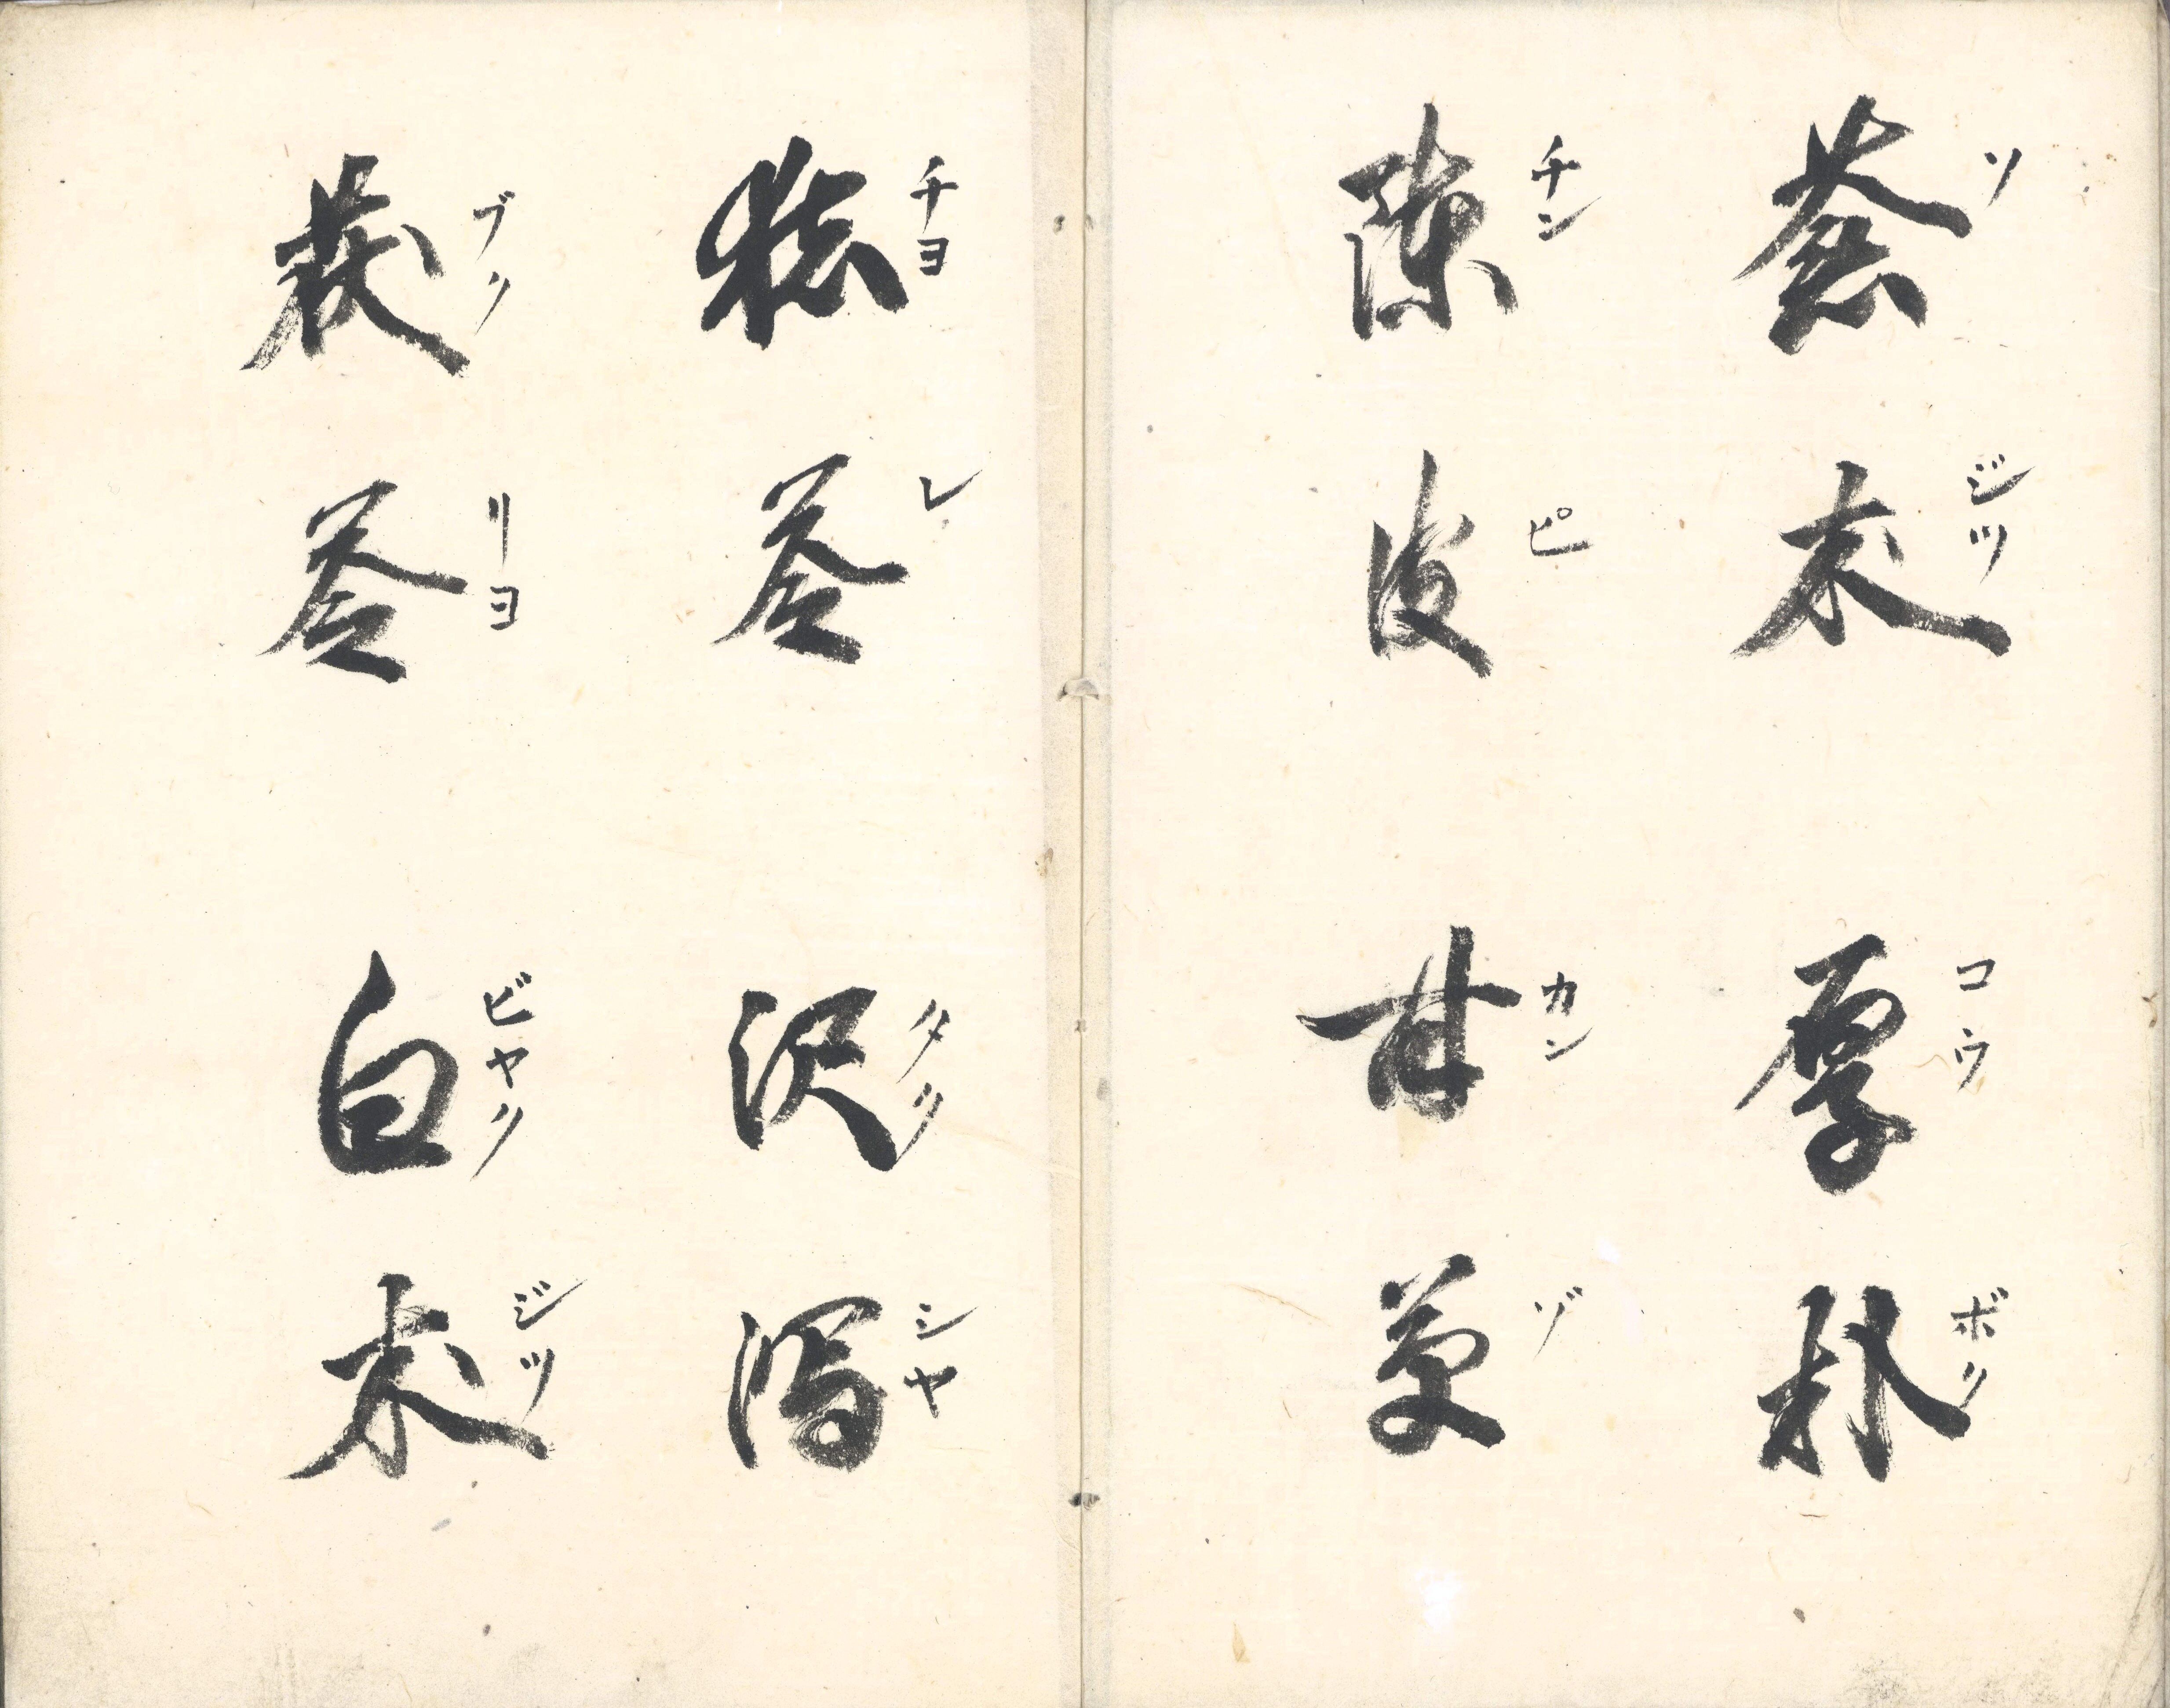 蒼朮 厚朴
ソ ジツ コウ ボク
陳皮 甘草
チン ピ カン ゾ
猪苓 沢瀉
チヨ レ タク シヤ
茯苓 白朮
ブク リヨ ビヤク ジツ